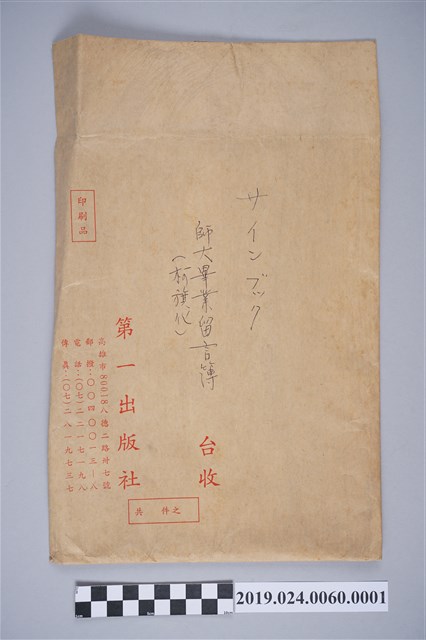 サインブック
師大畢業留言簿
(柯旗化)
台收
印刷品
第一出版社
高雄市80018八德二路卅七號
郵撥:〇〇四〇〇一三—八
電話:(〇七)二二一七一九八
傳真:(〇七)二八一九七三七
共 件 之
2019.024.0060.0001